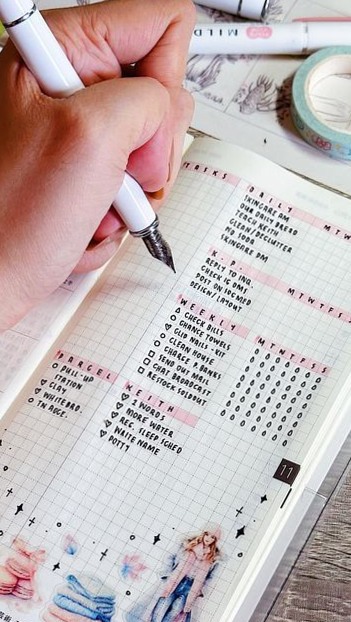 MILD
TASKS
DAILY
MTW
SKINCARE AM
OUR DAILY BREAD
TEACH KEITH
CLEAN/DECLUTTER
NO SODA
SKINCARE PM
K.P.
MTWTFS
REPLY TO INQ.
CHECK IG DMS
POST ON SOCMED
DESIGN/LAYOUT
WEEKLY
MTWTFSS
CHECK BILLS
CHANGE TOWELS
CLIP NAILS - KIT
CLEAN HOUSE
CHARGE P.BANKS
SEND OUT MAIL
CHAT BROADCAST
RESTOCK SOLDOUT
PARCEL
PULL-UP
STATION
CLAY
WHITEBRD.
KEITH
2 WORDS
MORE WATER
REG. SLEEP SCHED
WRITE NAME
POTTY
11